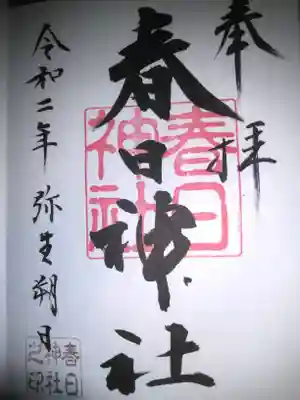 奉拝
春日神社
令和二年弥生朔日
春日神社
春日神社之印